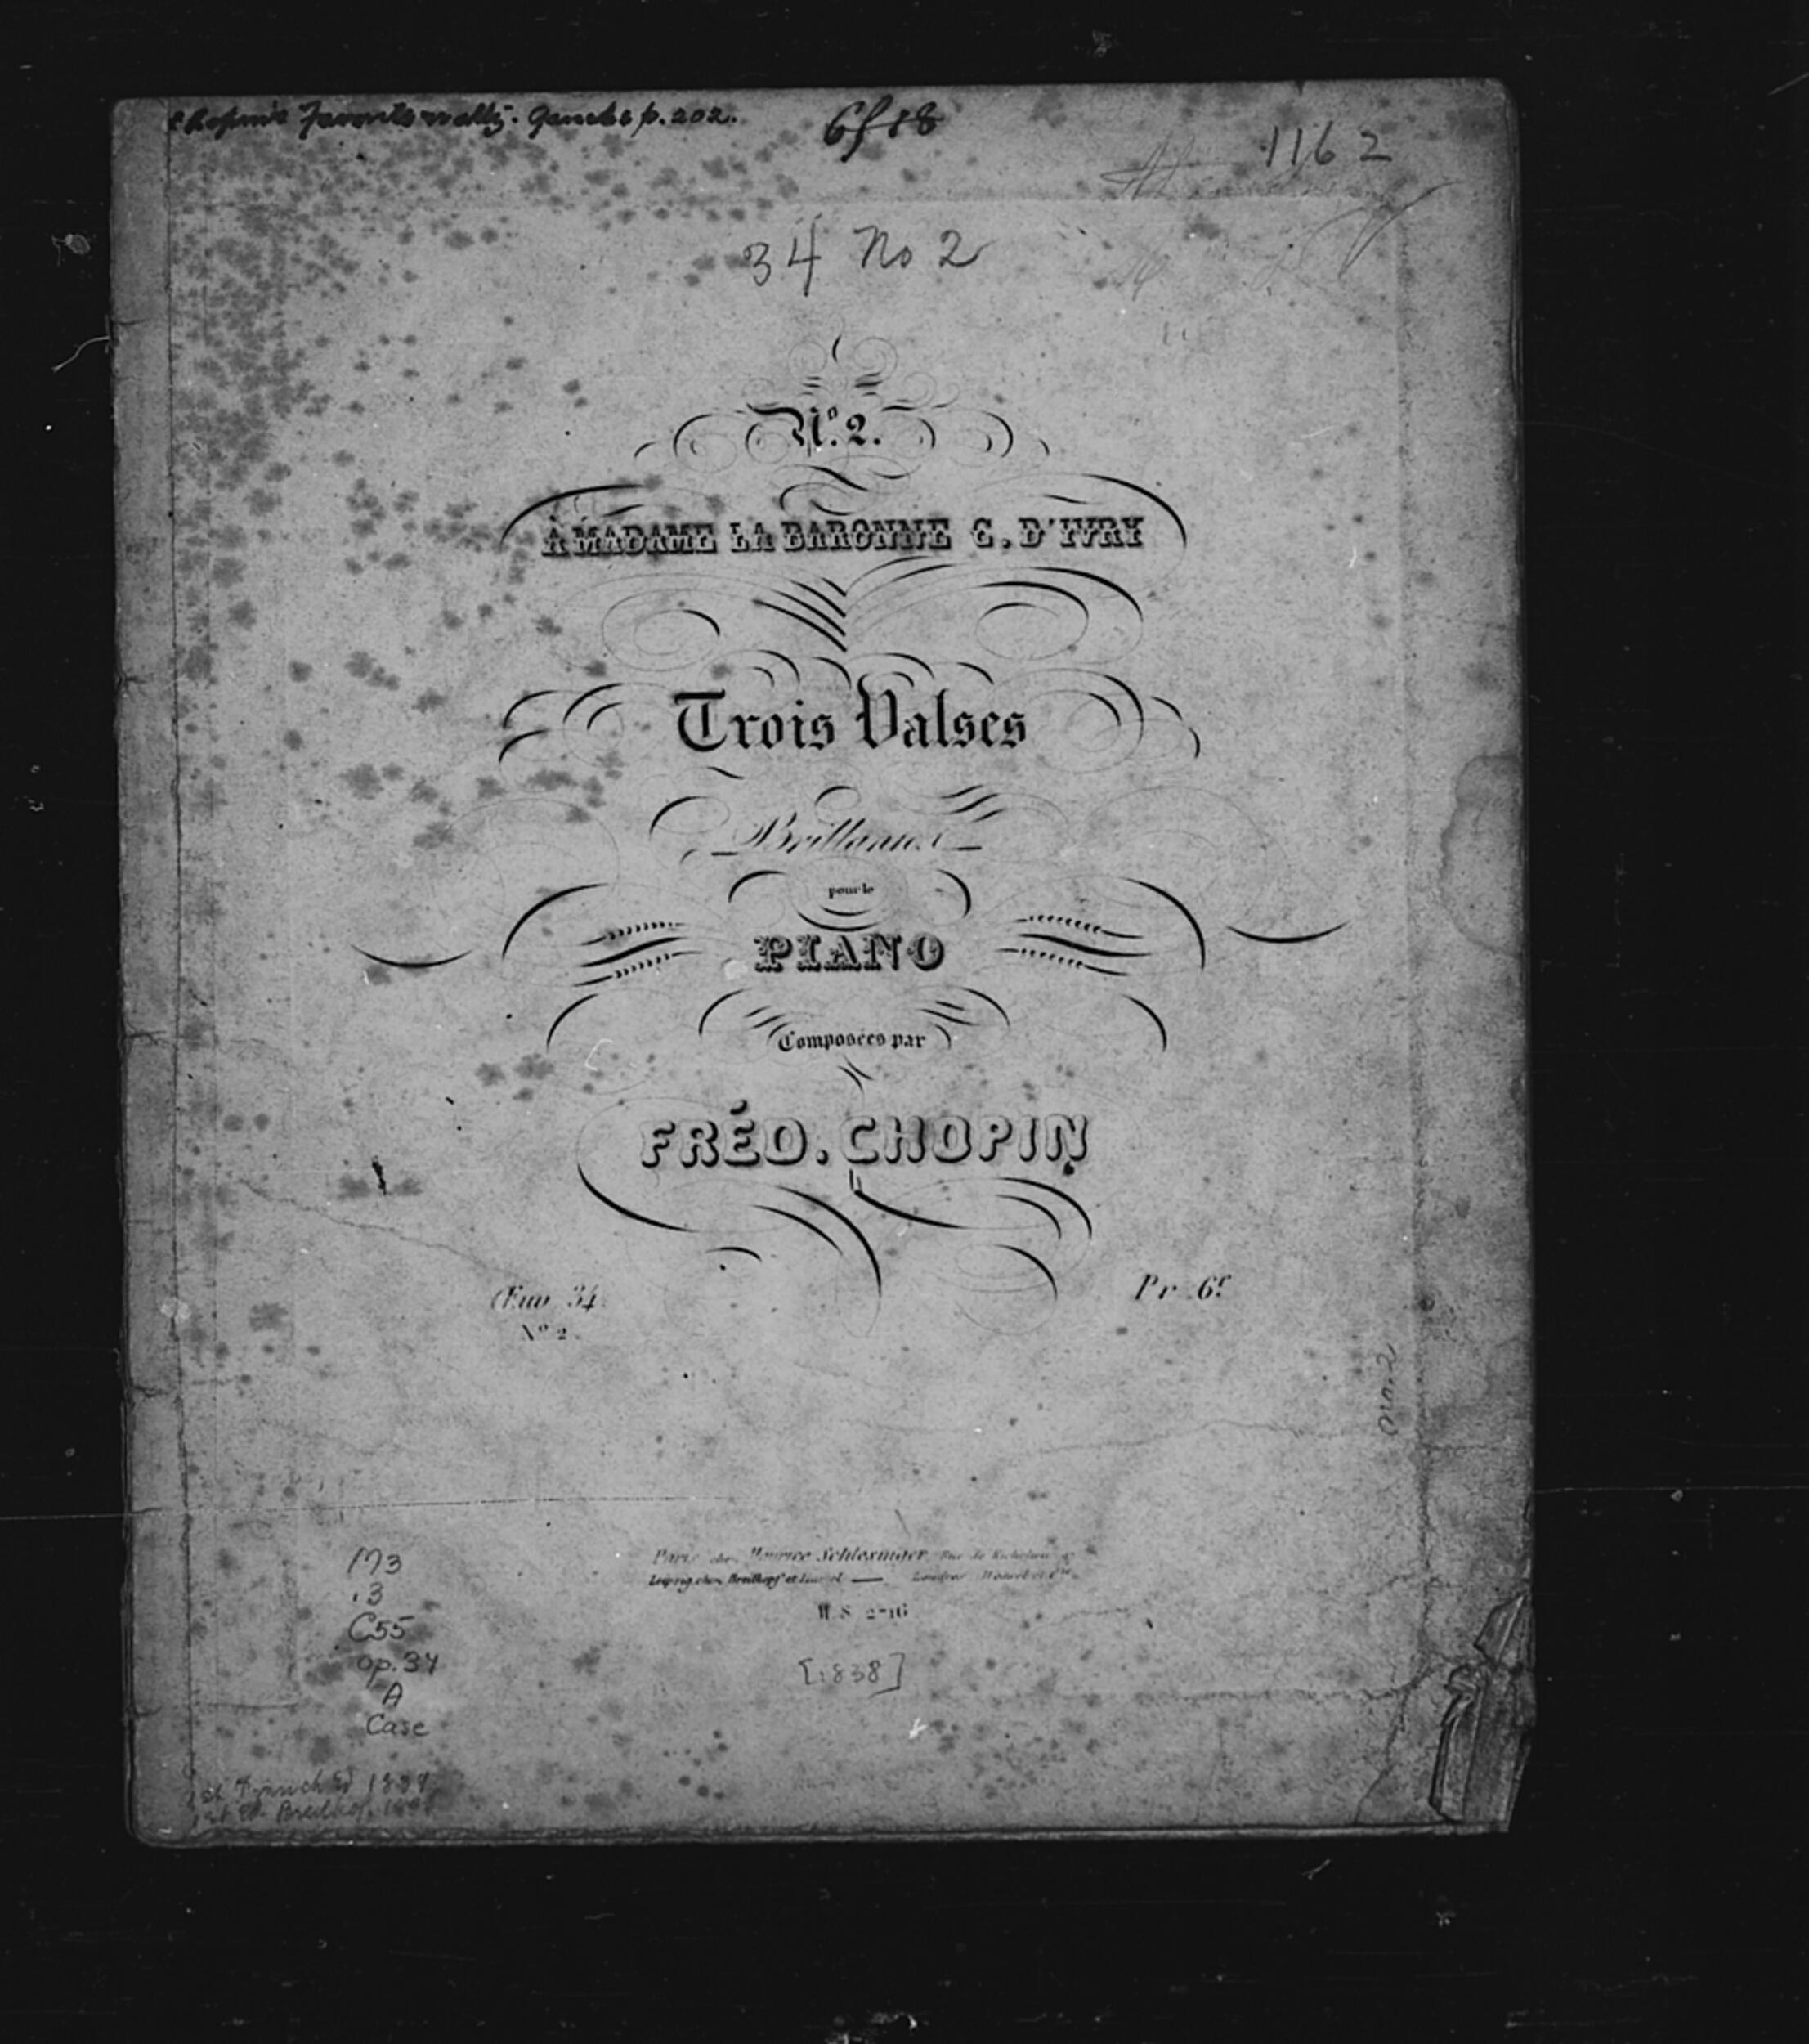 Chopin's Favorite waltz. Ganche p. 202.
1162
34 No 2
Nº. 2.
À MADAME LA BARONNE C. D'IVRY
Trois Valses
Brillantes
pour le
PIANO
Composées par
FRÉD. CHOPIN
Œuv 34
Pr 6f
Nº 2.
Paris chez Maurice Schlesinger Rue de Richelieu
Leipzig chez Breitkopf et Härtel — Londres Wessel et Cie
M.S. 2716
[1838]
M3
.3
C55
op.34
A
Case
1st French Ed 1838